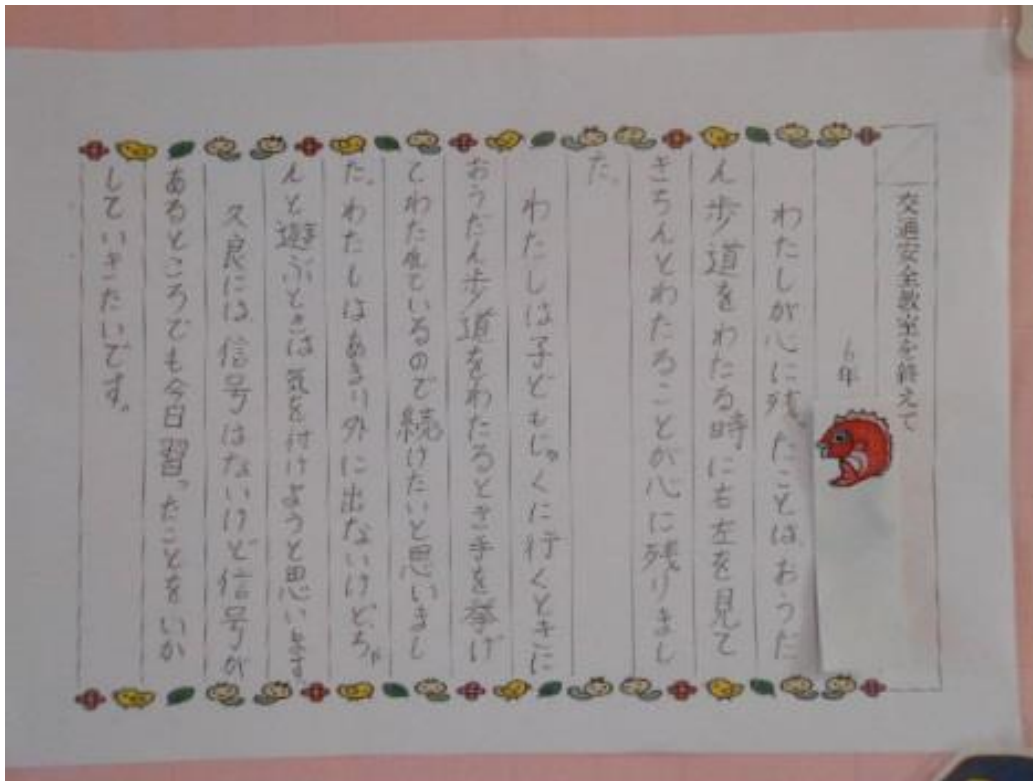 交通安全教室を終えて
6年
わたしが心に残ったことは、おうだ
ん歩道をわたる時に右左を見て
きちんとわたることが心に残りまし
た。
わたしは子どもじゅくに行くときに
おうだん歩道をわたるとき手を挙げ
てわたれているので続けたいと思いまし
た。わたしはあまり外に出ないけど、ちゃ
んと遊ぶときは気を付けようと思います
久良には、信号はないけど信号が
あるところでも今日習ったことをいか
していきたいです。